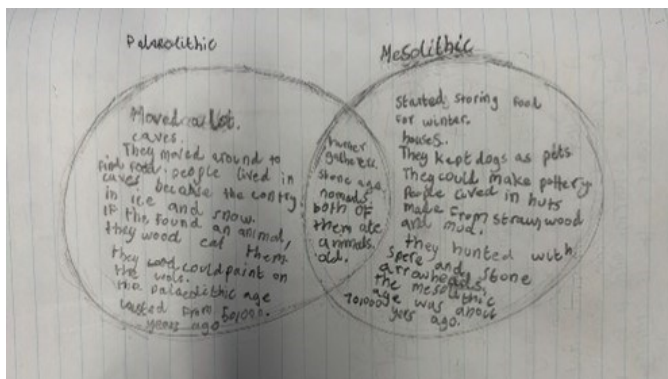 Palaeolithic
Moved a lot.
caves.
They moved around to
find food. people lived in
caves because the contry
in ice and snow.
IF the found an animal,
they wood eat them
they could paint on
the wals.
the palaeolithic age
lasted from
years ago
hunter
gatherers.
stone age.
nomads.
both OF
them ate
animals.
old.
Mesolithic
Started storing food
for winter.
houses.
They kept dogs as pets
They could make pottery
People lived in huts
made from straw, wood
and mud.
they hunted with
spere and stone
arrowheads.
the mesolithic
age was about
yers ago.